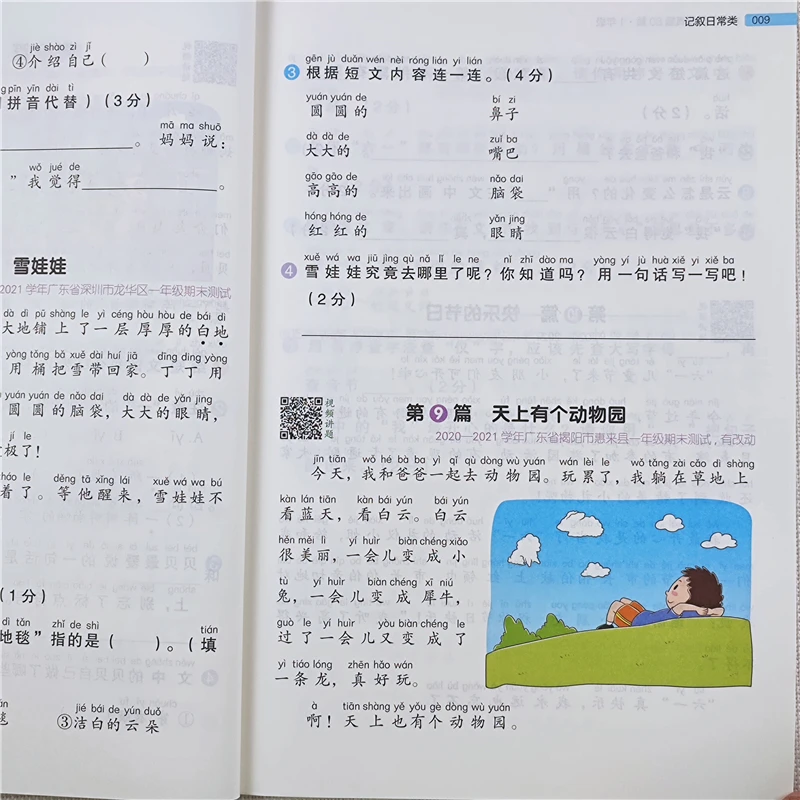 jiè shào zì jǐ
④介绍自己（　　）
pīn yīn dài tì
拼音代替）（3分）
mā ma shuō
。妈妈说：
wǒ jué de
”我觉得
。
雪娃娃
2021学年广东省深圳市龙华区一年级期末测试
dà dì pū shàng le yì céng hòu hòu de bái dì
大地铺上了一层厚厚的白地
yòng tǒng bǎ xuě dài huí jiā dīng dīng yòng
用桶把雪带回家。丁丁用
yuán yuán de nǎo dai dà dà de yǎn jing
圆圆的脑袋，大大的眼睛，
jí le
极了！
zháo le děng tā xǐng lái xuě wá wa bú
着了。等他醒来，雪娃娃不
（1分）
tǎn zhǐ de shì tián
地毯”指的是（　　）。（填
jié bái de yún duǒ
③洁白的云朵
记叙日常类 009
gēn jù duǎn wén nèi róng lián yi lián
3 根据短文内容连一连。（4分）
yuán yuán de bí zi
圆圆的 鼻子
dà dà de zuǐ ba
大大的 嘴巴
gāo gāo de nǎo dai
高高的 脑袋
hóng hóng de yǎn jing
红红的 眼睛
xuě wá wa jiū jìng qù nǎ lǐ le ne nǐ zhī dào ma yòng yí jù huà xiě yi xiě ba
4 雪娃娃究竟去哪里了呢？你知道吗？用一句话写一写吧！
（2分）
视频讲题
第9篇 天上有个动物园
2020—2021学年广东省揭阳市惠来县一年级期末测试，有改动
jīn tiān wǒ hé bà ba yì qǐ qù dòng wù yuán wán lèi le wǒ tǎng zài cǎo dì shàng
今天，我和爸爸一起去动物园。玩累了，我躺在草地上
kàn lán tiān kàn bái yún bái yún
看蓝天，看白云。白云
hěn měi lì yí huìr biàn chéng xiǎo
很美丽，一会儿变成小
tù yí huìr biàn chéng xī niú
兔，一会儿变成犀牛，
guò le yí huìr yòu biàn chéng le
过了一会儿又变成了
yì tiáo lóng zhēn hǎo wán
一条龙，真好玩。
à tiān shàng yě yǒu gè dòng wù yuán
啊！天上也有个动物园。